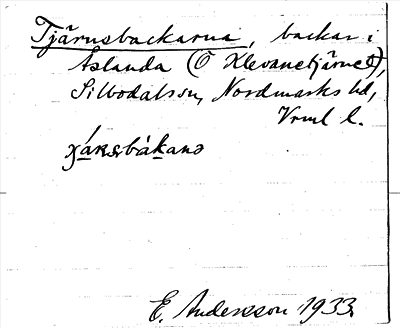 Tjärnsbackarna, backar i
Åslanda (Ö Klevanetjärnet),
Silbodals sn, Nordmarks hd,
Vrml l.
E. Andersson 1933.